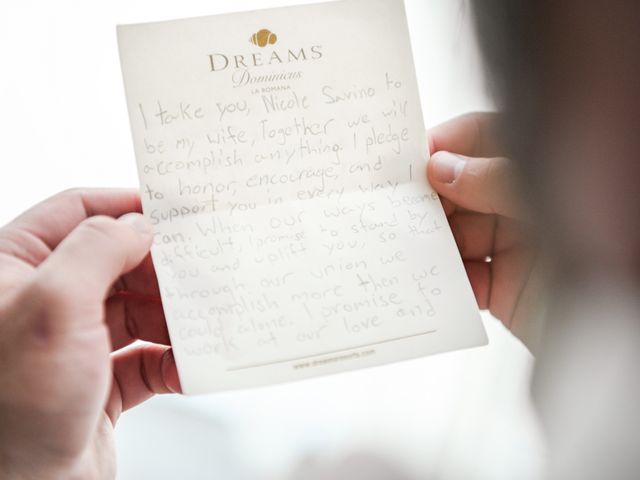 DREAMS
Dominicus
LA ROMANA
I take you, Nicole Savino to
be my wife, Together we will
accomplish anything. I pledge
to honor, encourage, and
support you in every way I
can. When our ways become
difficult, I promise to stand by
you and uplift you, so that
through our union we
accomplish more then we
could alone. I promise to
work at our love and
www.dreamsresorts.com